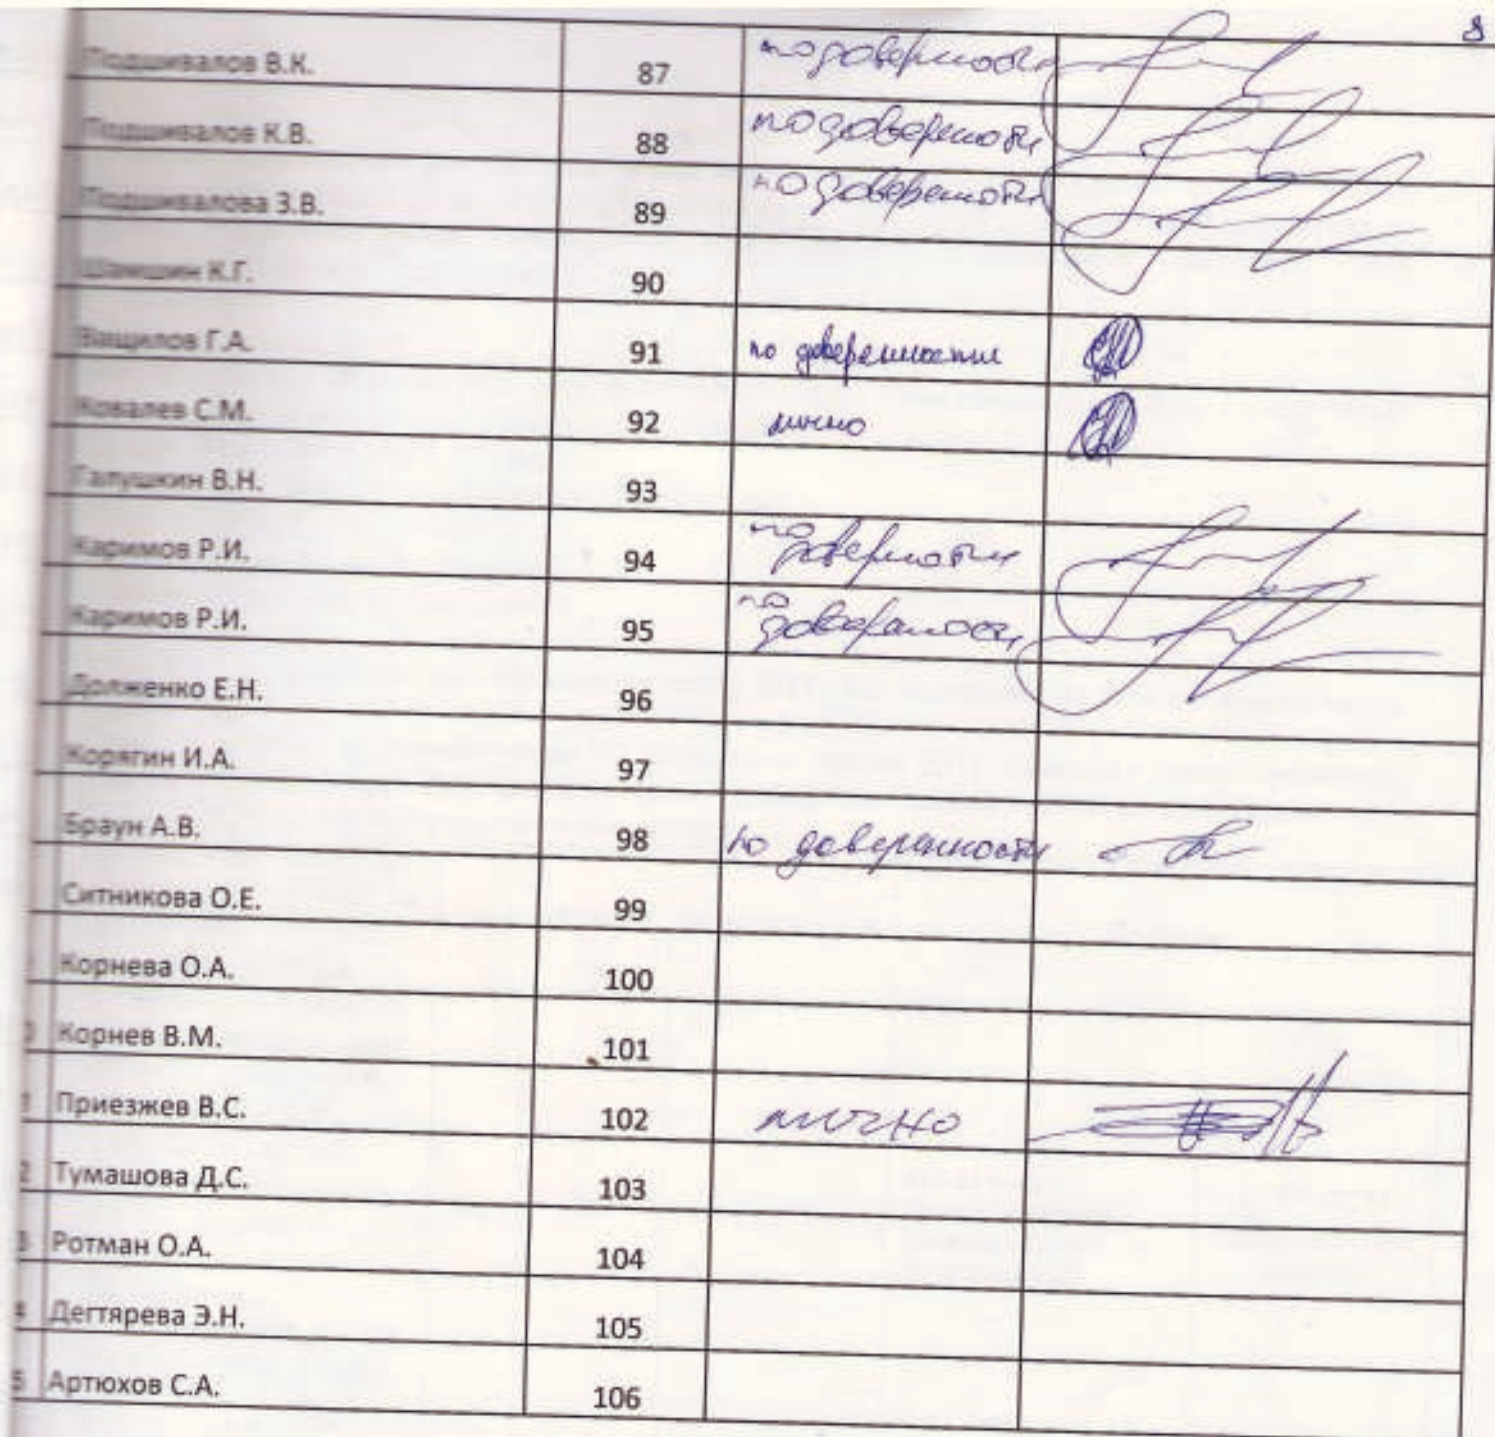 8
Подшивалов В.К. 87 по доверености
Подшивалов К.В. 88 по доверености
Подшивалова З.В. 89 по доверености
Шамшин К.Г. 90
Ващилов Г.А. 91 по доверенности
Ковалев С.М. 92 лично
Галушкин В.Н. 93
Каримов Р.И. 94 по доверености
Каримов Р.И. 95 по доверености
Долженко Е.Н. 96
Корягин И.А. 97
Браун А.В. 98 по доверенности
Ситникова О.Е. 99
Корнева О.А. 100
Корнев В.М. 101
Приезжев В.С. 102 лично
Тумашова Д.С. 103
Ротман О.А. 104
Дегтярева Э.Н. 105
Артюхов С.А. 106